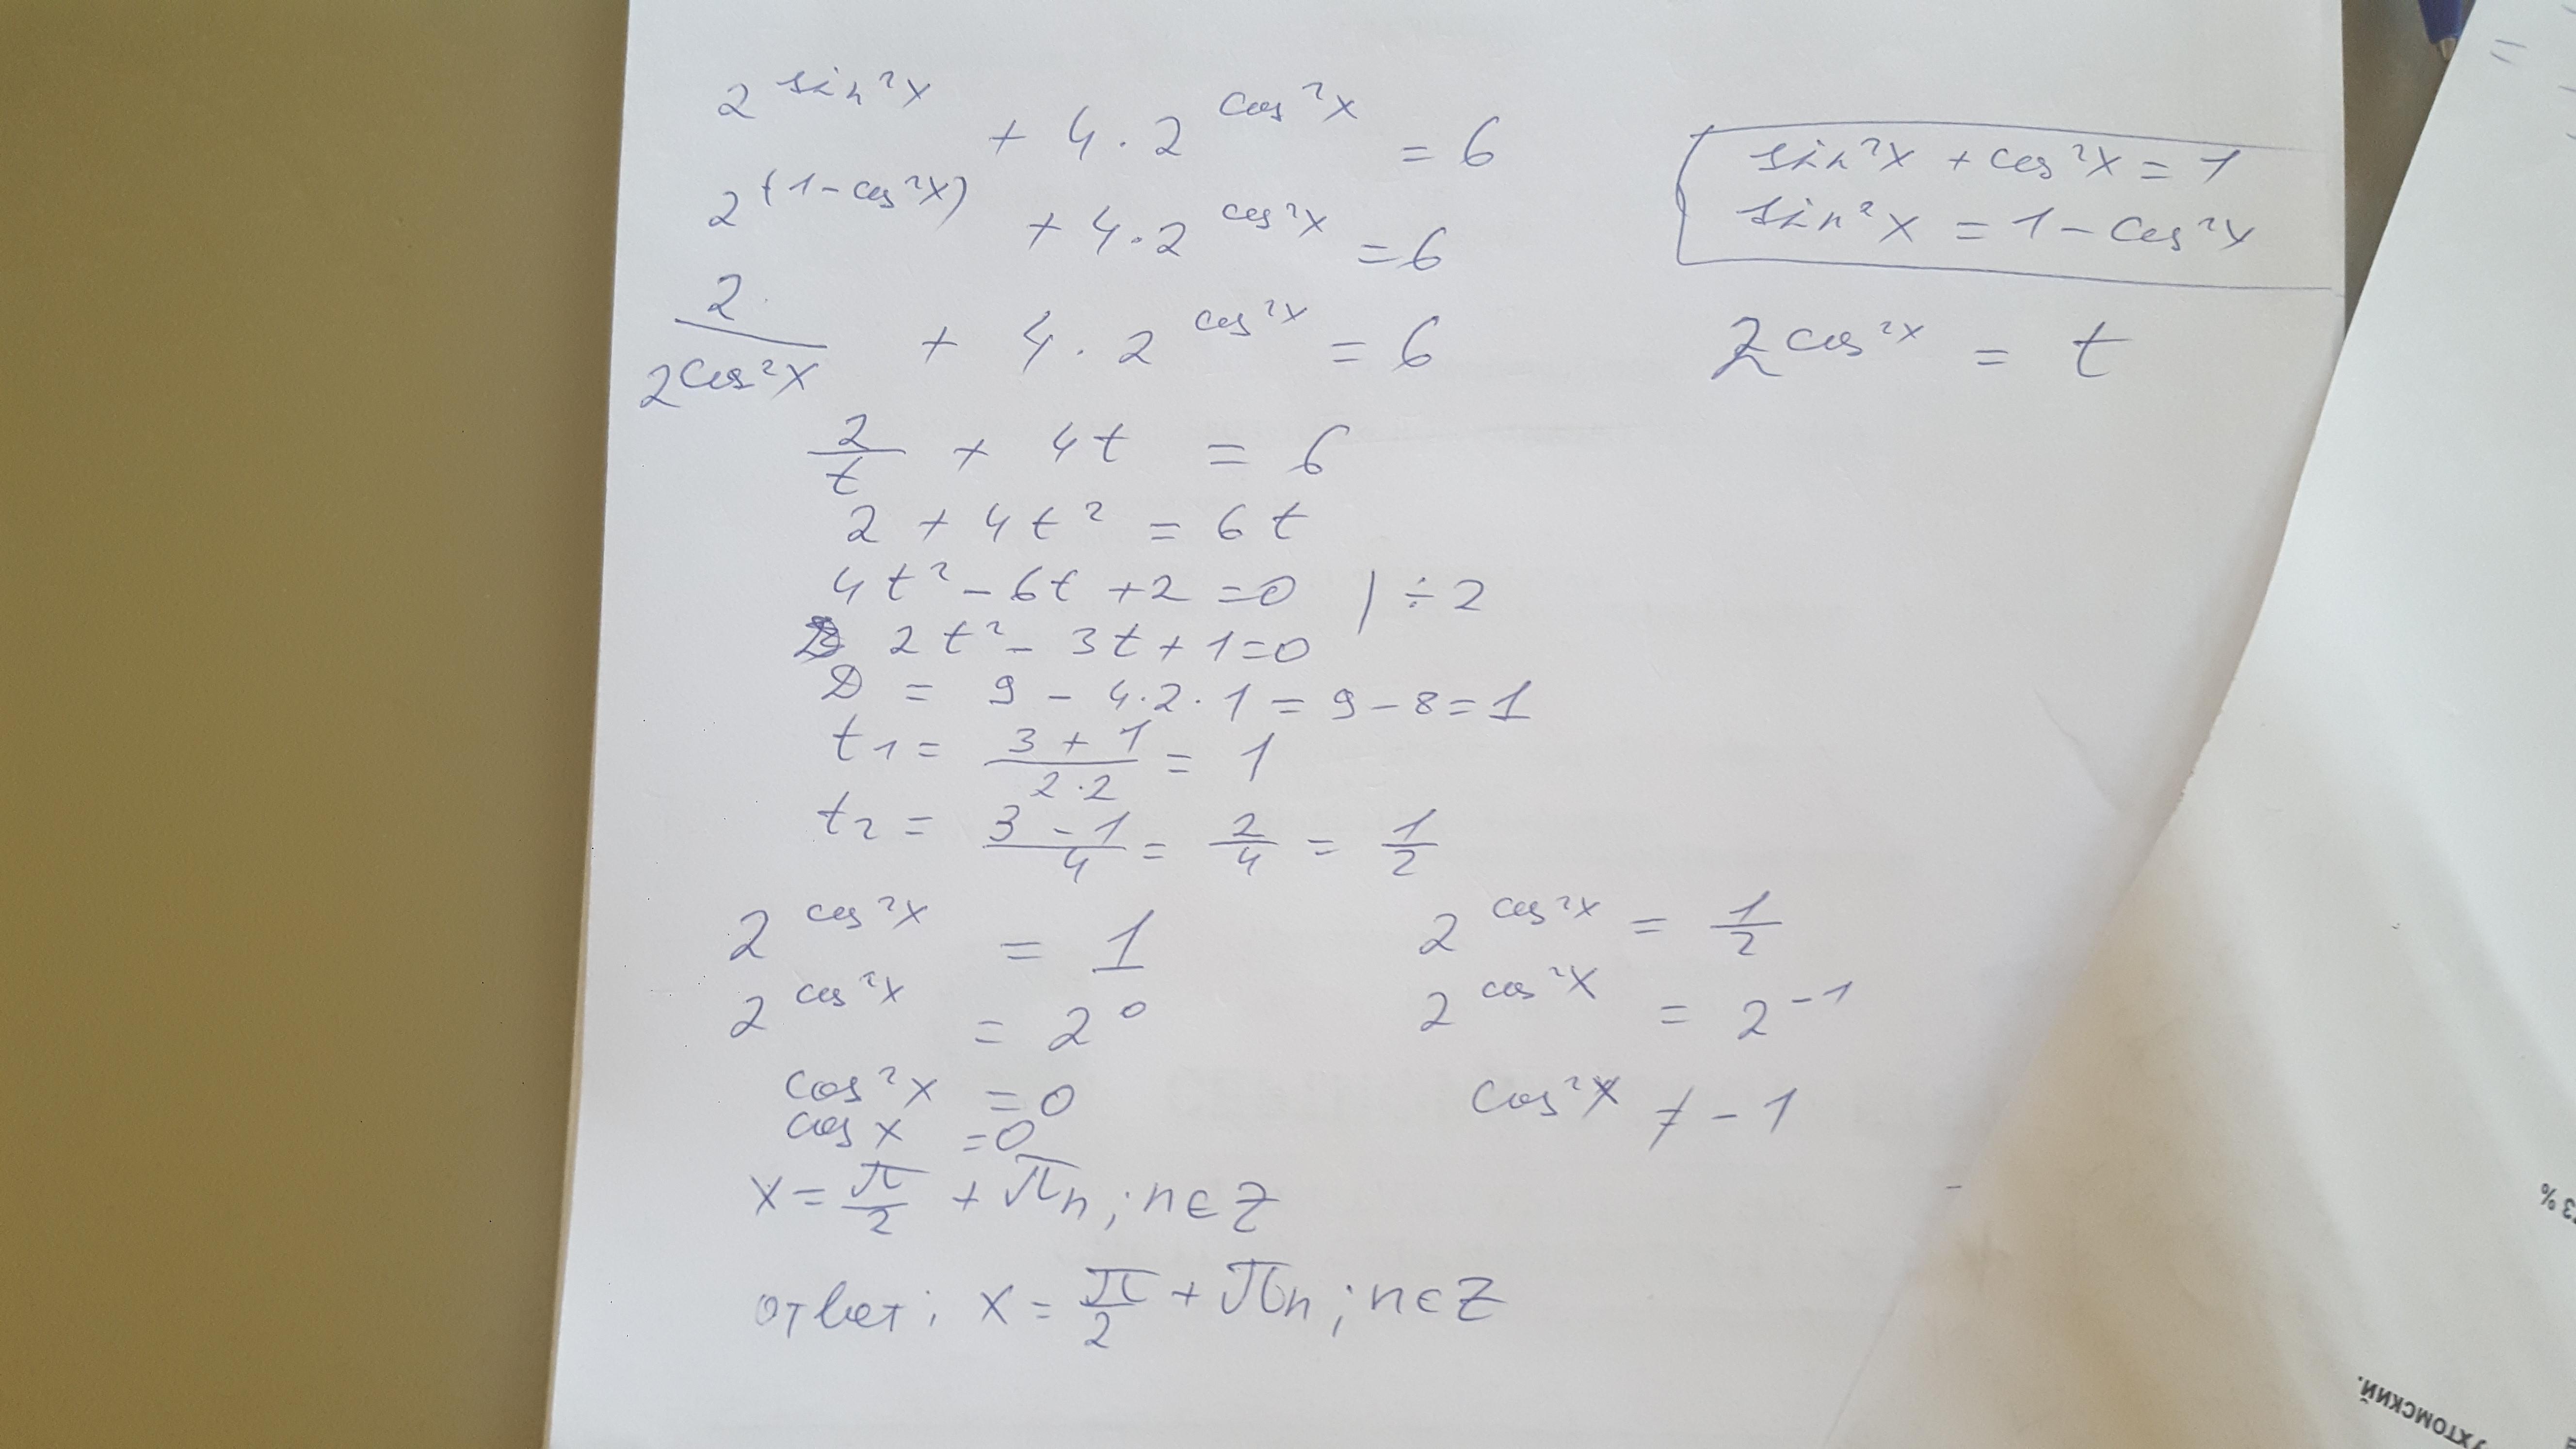 2^{sin²x} + 4 · 2^{cos²x} = 6
sin²x + cos²x = 1
sin²x = 1 - cos²x
2^{(1 - cos²x)} + 4 · 2^{cos²x} = 6
2/2^{cos²x} + 4 · 2^{cos²x} = 6
2^{cos²x} = t
2/t + 4t = 6
2 + 4t² = 6t
4t² - 6t + 2 = 0 | ÷ 2
2t² - 3t + 1 = 0
D = 9 - 4·2·1 = 9 - 8 = 1
t₁ = (3 + 1)/(2·2) = 1
t₂ = (3 - 1)/4 = 2/4 = 1/2
2^{cos²x} = 1
2^{cos²x} = 2⁰
cos²x = 0
cos x = 0
x = π/2 + πn; n ∈ Z
2^{cos²x} = 1/2
2^{cos²x} = 2⁻¹
cos²x ≠ -1
ответ: x = π/2 + πn; n ∈ Z
3 %
УХТОМСКИЙ.